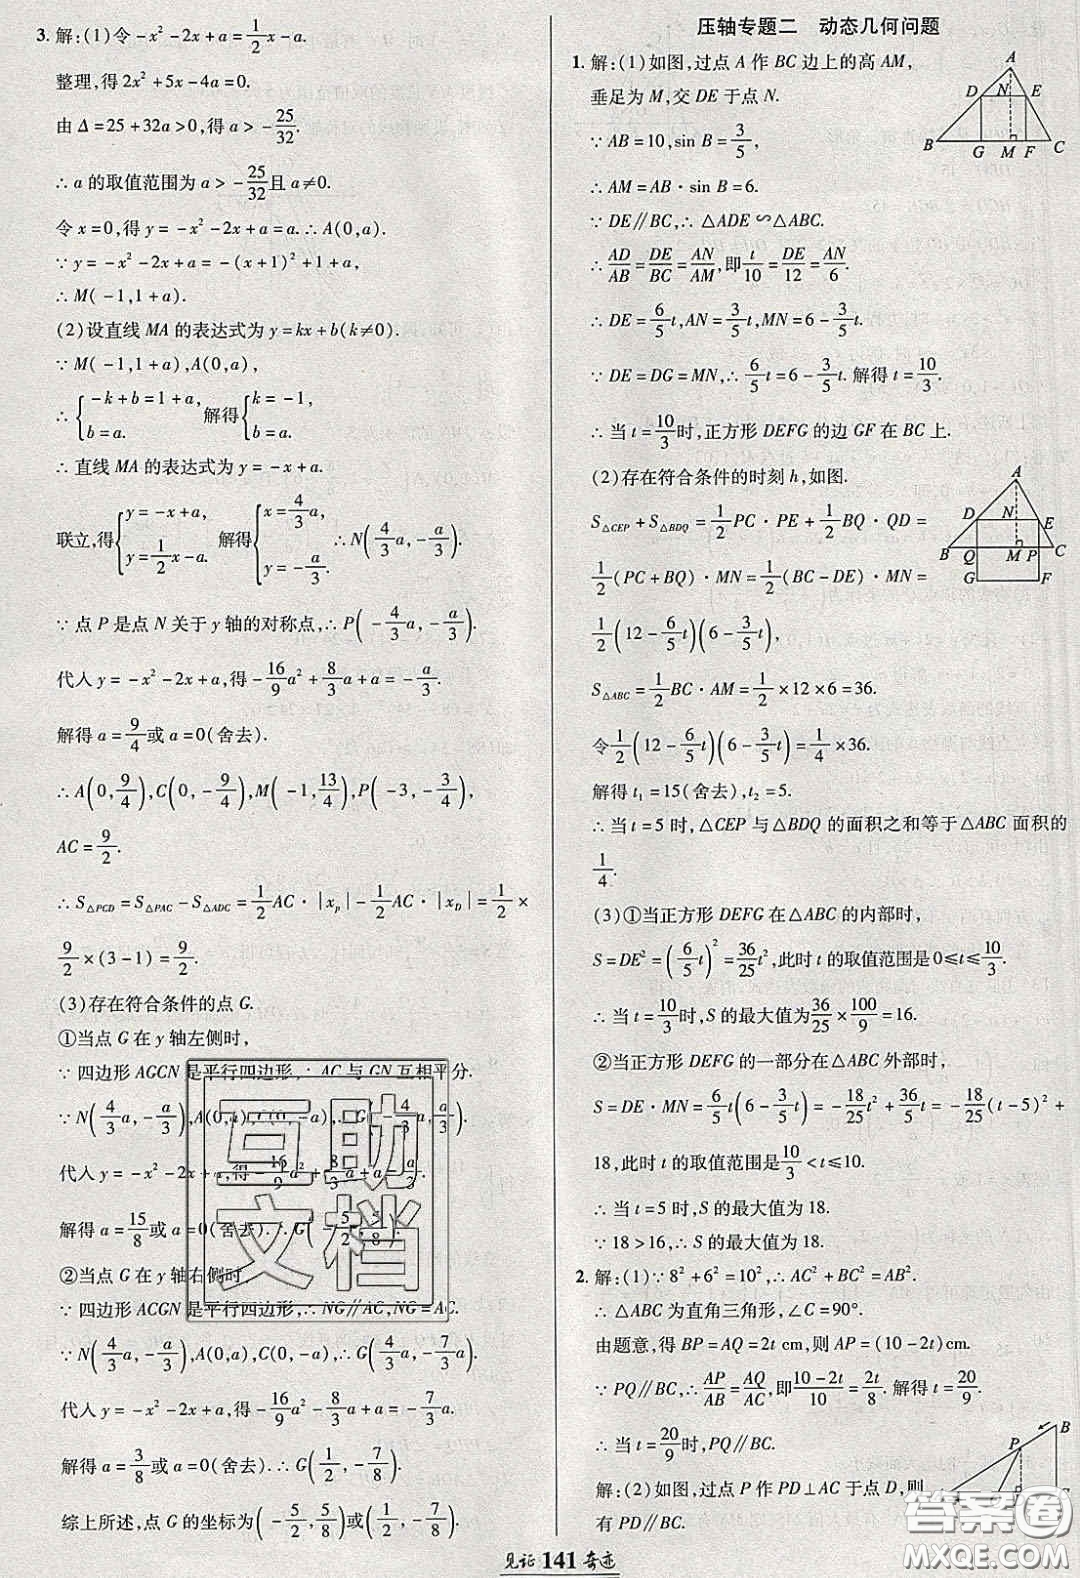 3. 解:(1)令 -x² - 2x + a = 1/2 x - a.
整理,得 2x² + 5x - 4a = 0.
由 Δ = 25 + 32a > 0,得 a > -25/32.
∴ a 的取值范围为 a > -25/32 且 a ≠ 0.
令 x = 0,得 y = -x² - 2x + a = a. ∴ A(0,a).
∵ y = -x² - 2x + a = -(x+1)² + 1 + a,
∴ M(-1,1+a).
(2)设直线 MA 的表达式为 y = kx + b(k ≠ 0).
∵ M(-1,1+a),A(0,a),
∴ { -k + b = 1 + a, b = a. 解得 { k = -1, b = a.
∴ 直线 MA 的表达式为 y = -x + a.
联立,得 { y = -x + a, y = 1/2 x - a. 解得 { x = 4/3 a, y = -a/3. ∴ N(4/3 a, -a/3).
∵ 点 P 是点 N 关于 y 轴的对称点,∴ P(-4/3 a, -a/3).
代入 y = -x² - 2x + a,得 -16/9 a² + 8/3 a + a = -a/3.
解得 a = 9/4 或 a = 0(舍去).
∴ A(0, 9/4),C(0, -9/4),M(-1, 13/4),P(-3, -3/4),
AC = 9/2.
∴ S△PCD = S△PAC - S△ADC = 1/2 AC · |xp| - 1/2 AC · |xD| = 1/2 ×
9/2 × (3-1) = 9/2.
(3)存在符合条件的点 G.
①当点 G 在 y 轴左侧时,
∵ 四边形 AGCN 是平行四边形,∴ AC 与 GN 互相平分.
∵ N(4/3 a, -a/3),A(0,a),C(0,-a),∴ G(-4/3 a, a/3).
代入 y = -x² - 2x + a,得 -16/9 a² + 8/3 a + a = a/3.
解得 a = 15/8 或 a = 0(舍去). ∴ G(-5/2, 5/8).
②当点 G 在 y 轴右侧时,
∵ 四边形 ACGN 是平行四边形,∴ NG∥AC,NG = AC.
∵ N(4/3 a, -a/3),A(0,a),C(0,-a),∴ G(4/3 a, -7/3 a).
代入 y = -x² - 2x + a,得 -16/9 a² - 8/3 a + a = -7/3 a.
解得 a = 3/8 或 a = 0(舍去). ∴ G(1/2, -7/8).
综上所述,点 G 的坐标为 (-5/2, 5/8) 或 (1/2, -7/8).
压轴专题二 动态几何问题
1. 解:(1)如图,过点 A 作 BC 边上的高 AM,
垂足为 M,交 DE 于点 N.
∵ AB = 10,sin B = 3/5,
∴ AM = AB · sin B = 6.
∵ DE∥BC,∴ △ADE ∽ △ABC.
∴ AD/AB = DE/BC = AN/AM,即 t/10 = DE/12 = AN/6.
∴ DE = 6/5 t,AN = 3/5 t,MN = 6 - 3/5 t.
∵ DE = DG = MN,∴ 6/5 t = 6 - 3/5 t. 解得 t = 10/3.
∴ 当 t = 10/3 时,正方形 DEFG 的边 GF 在 BC 上.
A D N E B G M F C
(2)存在符合条件的时刻 h,如图.
S△CEP + S△BDQ = 1/2 PC · PE + 1/2 BQ · QD =
1/2 (PC + BQ) · MN = 1/2 (BC - DE) · MN =
1/2 (12 - 6/5 t)(6 - 3/5 t),
S△ABC = 1/2 BC · AM = 1/2 × 12 × 6 = 36.
令 1/2 (12 - 6/5 t)(6 - 3/5 t) = 1/4 × 36.
解得 t₁ = 15(舍去),t₂ = 5.
∴ 当 t = 5 时,△CEP 与 △BDQ 的面积之和等于 △ABC 面积的
1/4.
A D N E B Q M P C G F
(3)①当正方形 DEFG 在 △ABC 的内部时,
S = DE² = (6/5 t)² = 36/25 t²,此时 t 的取值范围是 0 ≤ t ≤ 10/3.
∴ 当 t = 10/3 时,S 的最大值为 36/25 × 100/9 = 16.
②当正方形 DEFG 的一部分在 △ABC 外部时,
S = DE · MN = 6/5 t(6 - 3/5 t) = -18/25 t² + 36/5 t = -18/25 (t-5)² +
18,此时 t 的取值范围是 10/3 < t ≤ 10.
∴ 当 t = 5 时,S 的最大值为 18.
∵ 18 > 16,∴ S 的最大值为 18.
2. 解:(1)∵ 8² + 6² = 10²,∴ AC² + BC² = AB².
∴ △ABC 为直角三角形,∠C = 90°.
由题意,得 BP = AQ = 2t cm,则 AP = (10 - 2t)cm.
∵ PQ∥BC,∴ AP/AB = AQ/AC,即 (10-2t)/10 = 2t/8. 解得 t = 20/9.
∴ 当 t = 20/9 时,PQ∥BC.
解:(2)如图,过点 P 作 PD⊥AC 于点 D,则
有 PD∥BC.
B P
见证 141 奇迹
互助文档
答案圈
MXQE.COM